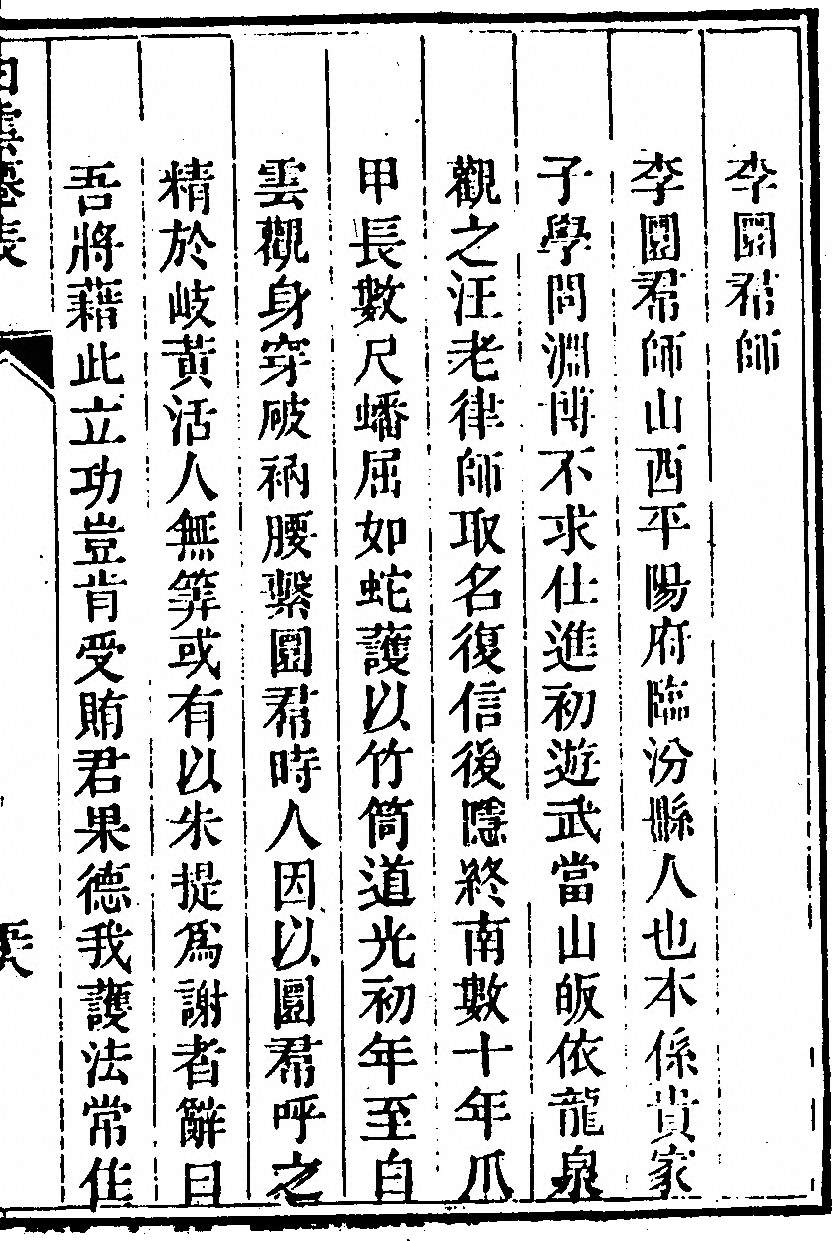 李圍裙師
李圍裙師山西平陽府臨汾縣人也本係貴家
子學問淵博不求仕進初遊武當山皈依龍泉
觀之汪老律師取名復信後隱終南數十年爪
甲長數尺蟠屈如蛇護以竹筒道光初年至白
雲觀身穿破衲腰繫圍裙時人因以圍裙呼之
精於岐黃活人無算或有以朱提爲謝者辭曰
吾將藉此立功豈肯受賄君果德我護法常住